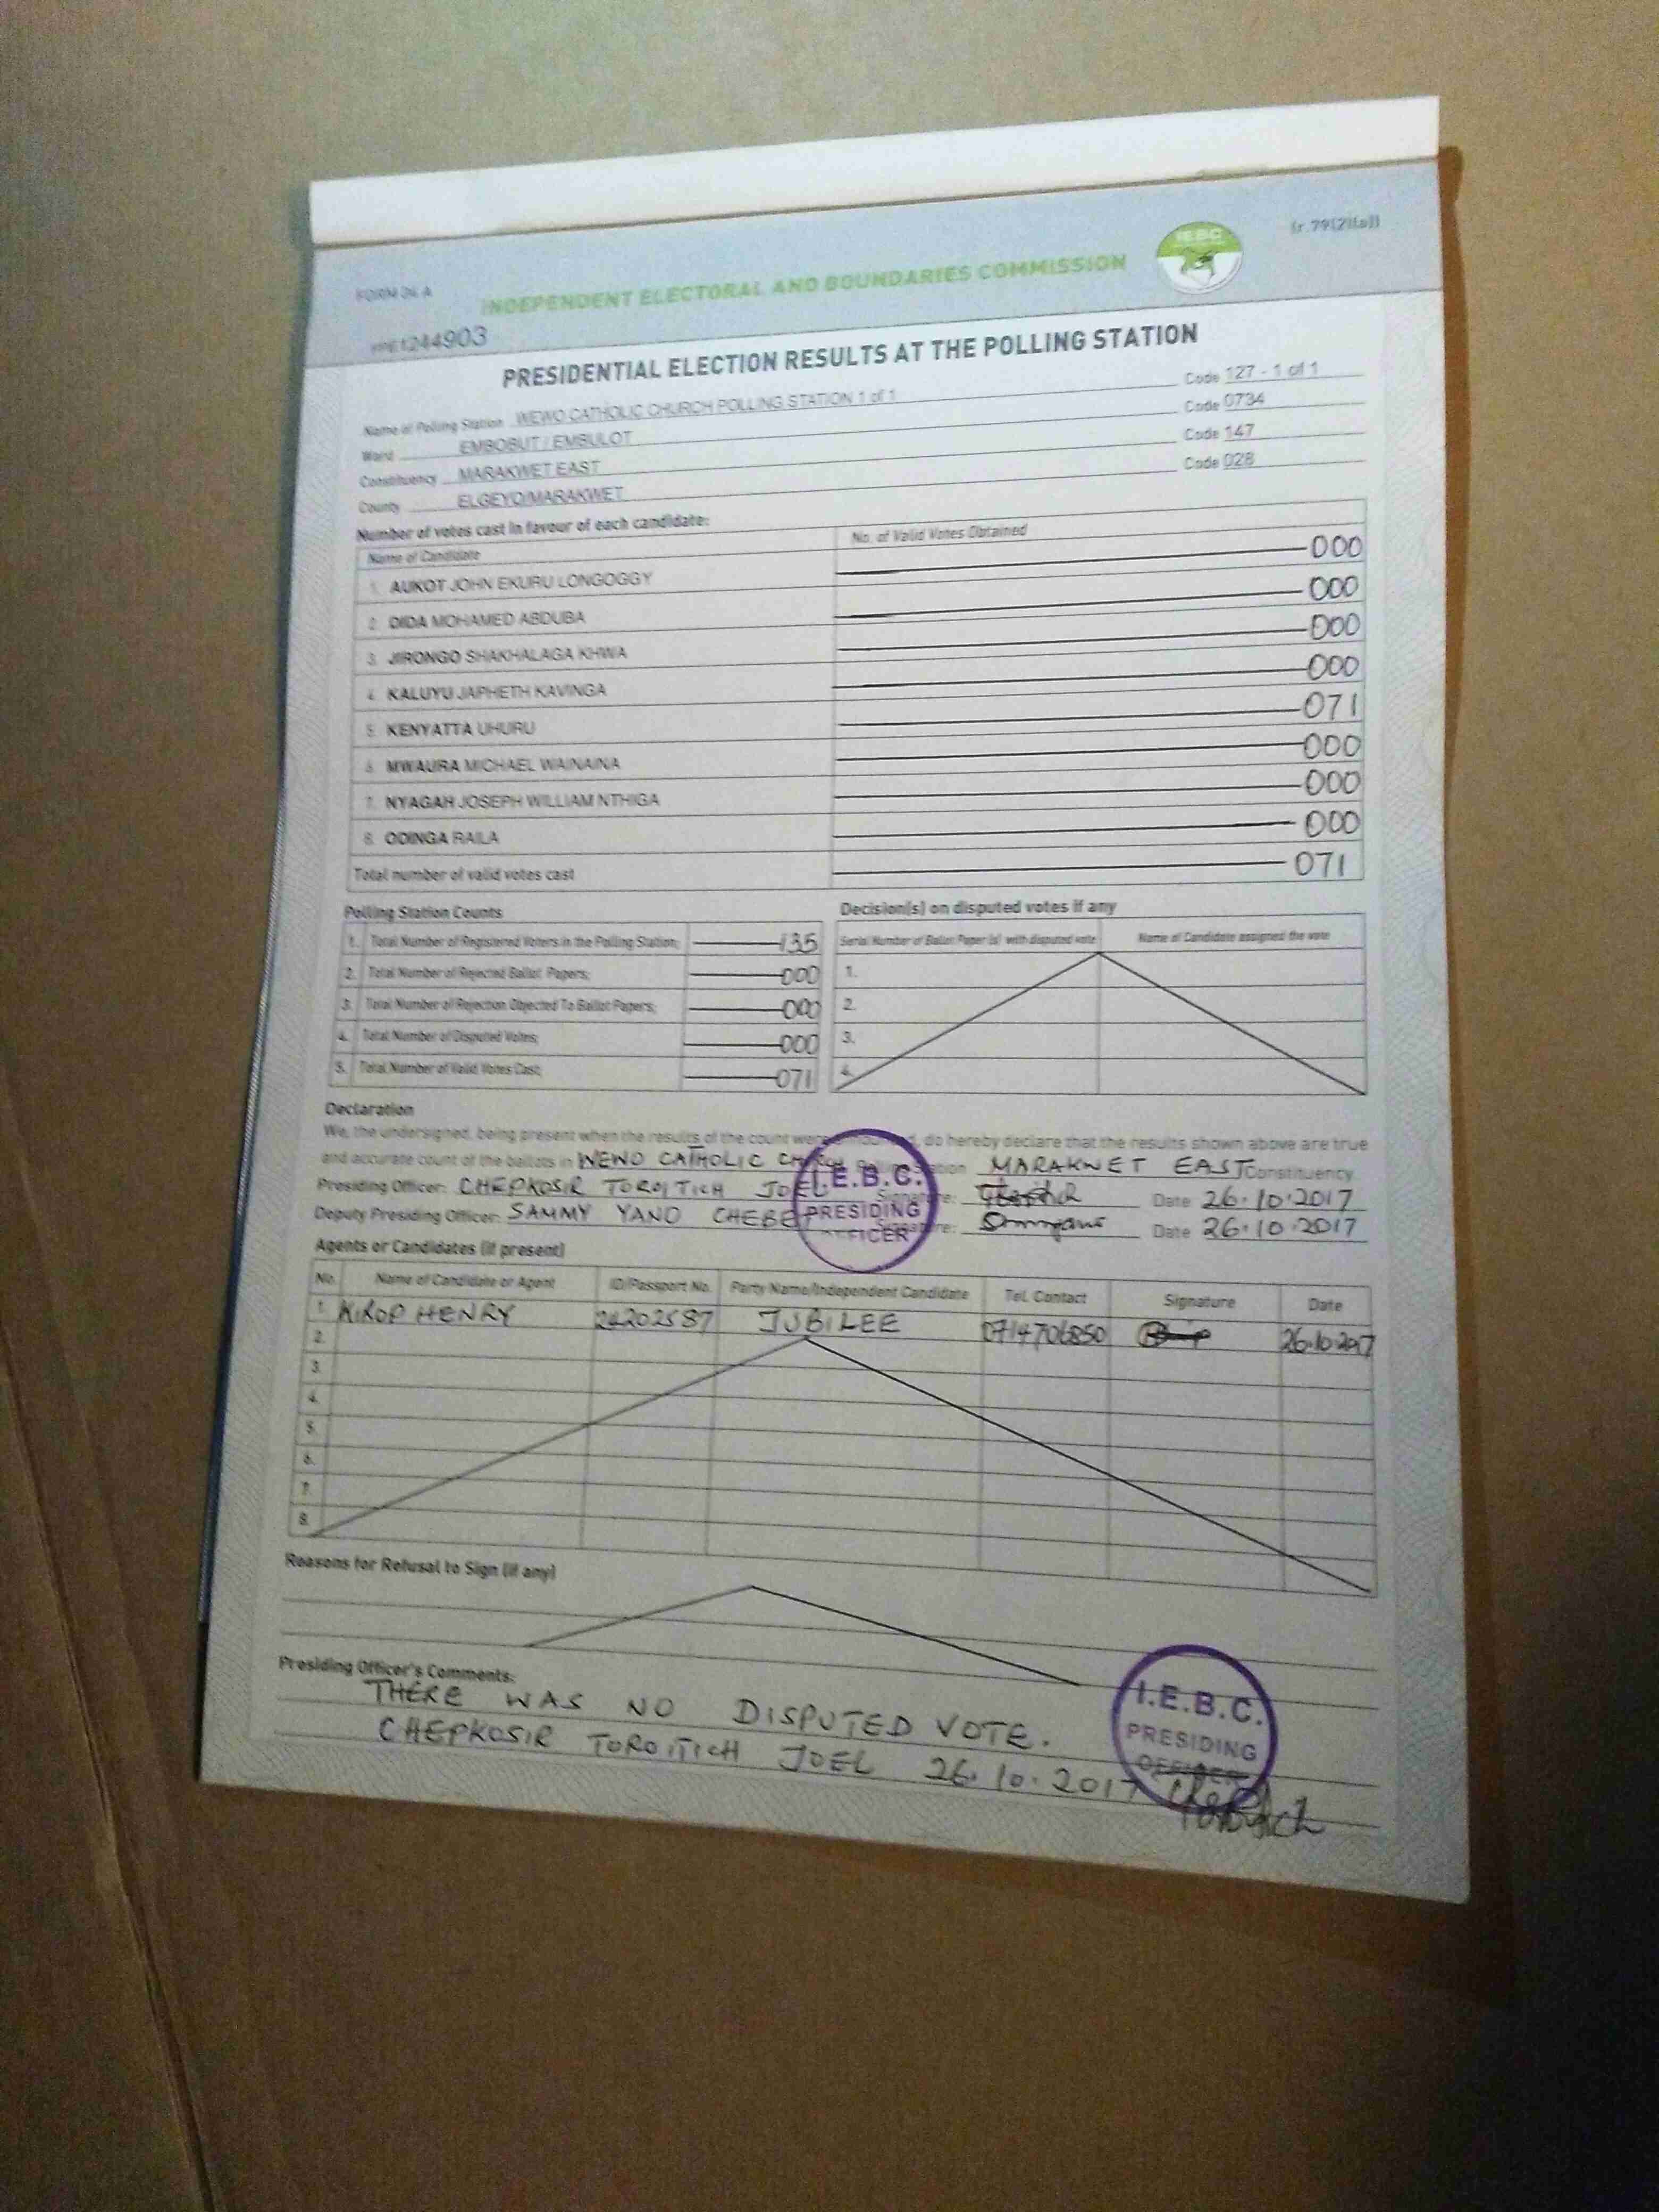 (r.79(2)(a))
FORM 34 A
INDEPENDENT ELECTORAL AND BOUNDARIES COMMISSION
IEBC
1244903
PRESIDENTIAL ELECTION RESULTS AT THE POLLING STATION
Name of Polling Station WEWO CATHOLIC CHURCH POLLING STATION 1 of 1 Code 127 - 1 of 1
Ward EMBOBUT / EMBULOT Code 0734
Constituency MARAKWET EAST Code 147
County ELGEYO/MARAKWET Code 028
Number of votes cast in favour of each candidate:
Name of Candidate No. of Valid Votes Obtained
1. AUKOT JOHN EKURU LONGOGGY 000
2. DIDA MOHAMED ABDUBA 000
3. JIRONGO SHAKHALAGA KHWA 000
4. KALUYU JAPHETH KAVINGA 000
5. KENYATTA UHURU 071
6. MWAURA MICHAEL WAINAINA 000
7. NYAGAH JOSEPH WILLIAM NTHIGA 000
8. ODINGA RAILA 000
Total number of valid votes cast 071
Polling Station Counts
1. Total Number of Registered Voters in the Polling Station; 135
2. Total Number of Rejected Ballot Papers; 000
3. Total Number of Rejection Objected To Ballot Papers; 000
4. Total Number of Disputed Votes; 000
5. Total Number of Valid Votes Cast; 071
Decision(s) on disputed votes if any
Serial Number of Ballot Paper (s) with disputed vote Name of Candidate assigned the vote
1.
2.
3.
4.
Declaration
We, the undersigned, being present when the results of the count were announced, do hereby declare that the results shown above are true
and accurate count of the ballots in WEWO CATHOLIC CHURCH Polling Station MARAKWET EAST Constituency
Presiding Officer: CHEPKOSIR TOROITICH JOEL Signature: Date 26.10.2017
Deputy Presiding Officer: SAMMY YANO CHEBET Signature: Date 26.10.2017
I.E.B.C.
PRESIDING
OFFICER
Agents or Candidates (if present)
No. Name of Candidate or Agent ID/Passport No. Party Name/Independent Candidate Tel. Contact Signature Date
1. KIROP HENRY 24202587 JUBILEE 0714706850 26.10.2017
2.
3.
4.
5.
6.
7.
8.
Reasons for Refusal to Sign (if any)
Presiding Officer's Comments:
THERE WAS NO DISPUTED VOTE.
CHEPKOSIR TOROITICH JOEL 26.10.2017
I.E.B.C.
PRESIDING
OFFICER